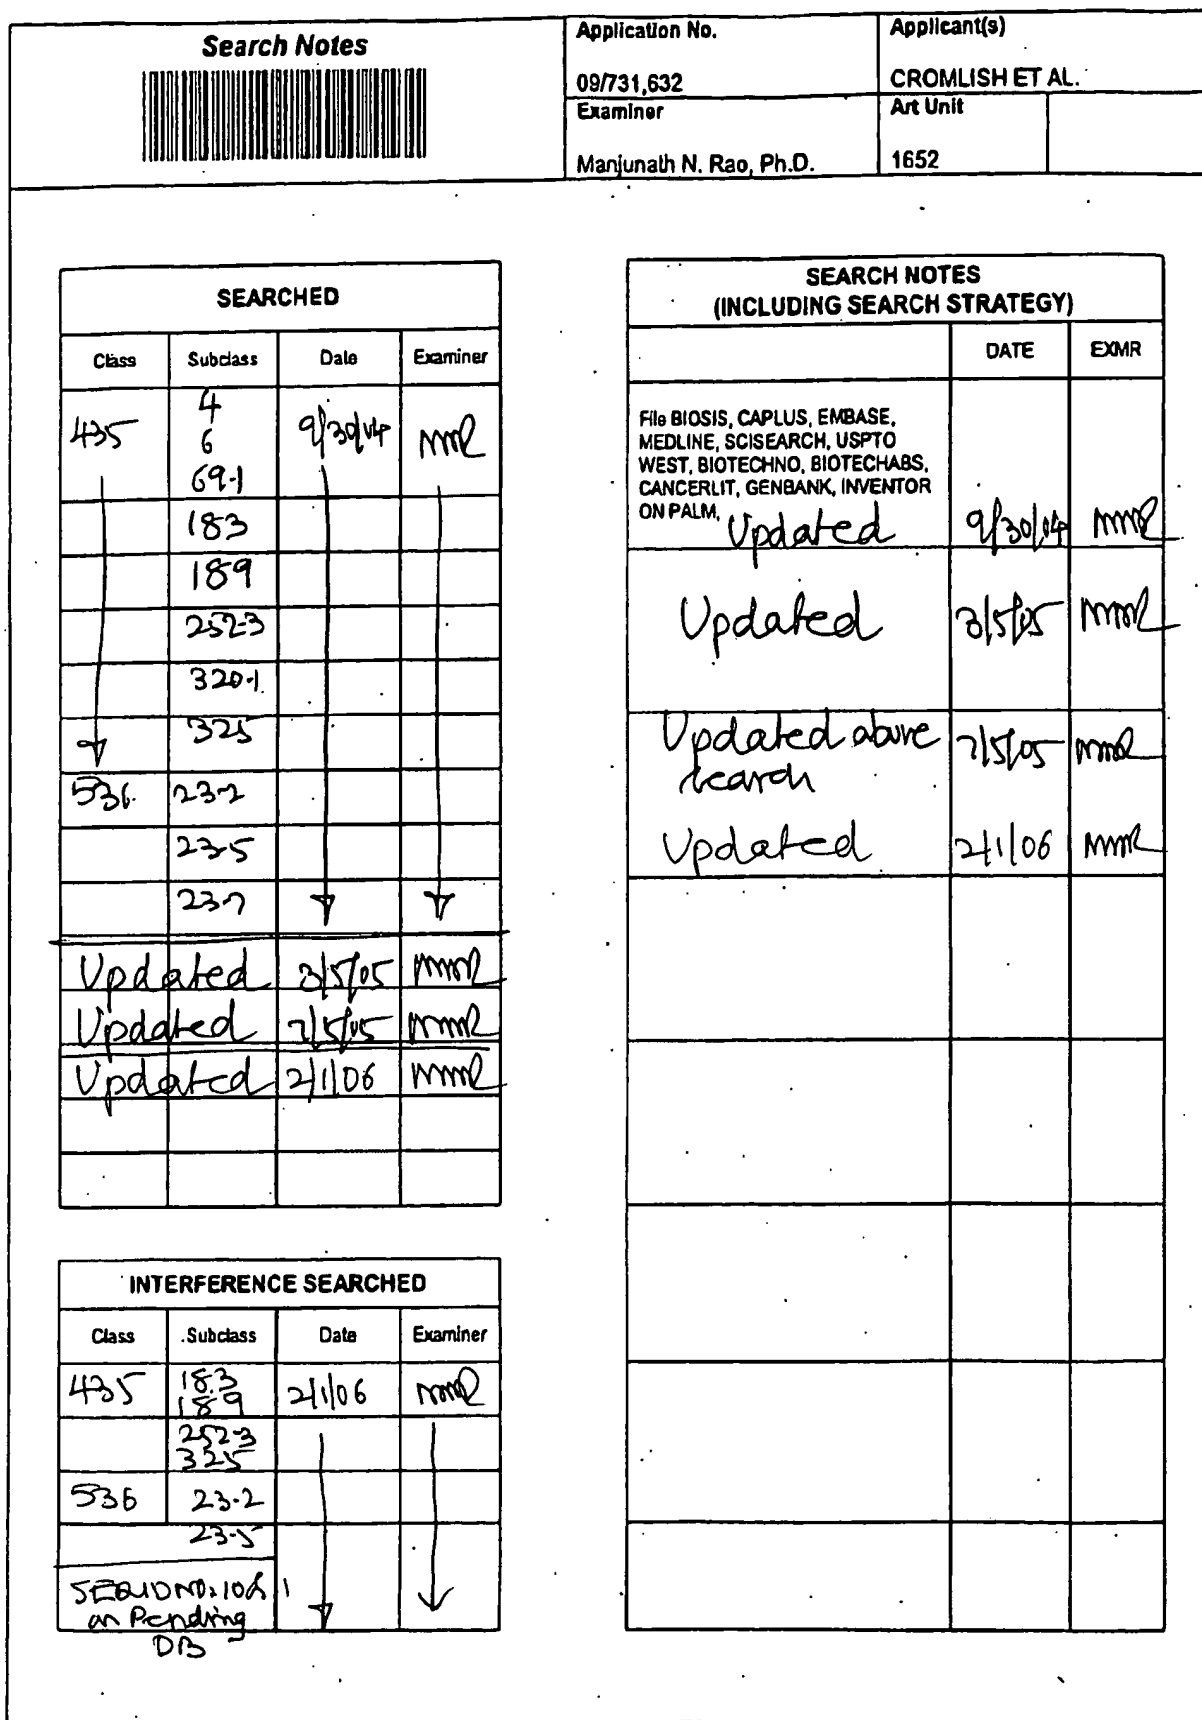 Search Notes
Application No.
09/731,632
Applicant(s)
CROMLISH ET AL.
Examiner
Manjunath N. Rao, Ph.D.
Art Unit
1652
SEARCHED
Class Subclass Date Examiner
435 4 9/30/04 MNR
6
69.1
183
189
252.3
320.1
325
536 23.2
23.5
23.7
Updated 3/5/05 MNR
Updated 7/5/05 MNR
Updated 2/1/06 MNR
INTERFERENCE SEARCHED
Class Subclass Date Examiner
435 183 2/1/06 MNR
189
252.3
325
536 23.2
23.5
SEQ ID NO: 10&11
on Pending
DB
SEARCH NOTES
(INCLUDING SEARCH STRATEGY)
DATE EXMR
File BIOSIS, CAPLUS, EMBASE,
MEDLINE, SCISEARCH, USPTO
WEST, BIOTECHNO, BIOTECHABS,
CANCERLIT, GENBANK, INVENTOR
ON PALM, Updated 9/30/04 MNR
Updated 3/5/05 MNR
Updated above 7/5/05 MNR
search
Updated 2/1/06 MNR